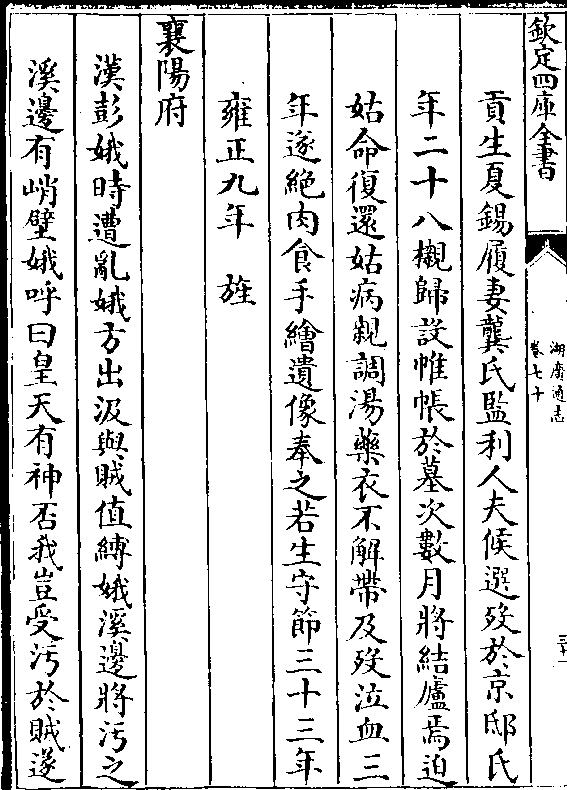 欽定四庫全書
湖廣通志
卷七十
貢生夏錫履妻龔氏監利人夫候選歿於京邸氏
年二十八櫬歸設帷帳於墓次數月將結廬焉迫
姑命復還姑病親調湯藥衣不解帶及歿泣血三
年遂絶肉食手繪遺像奉之若生守節三十三年
雍正九年旌
襄陽府
漢彭娥時遭亂娥方出汲與賊值縛娥溪邊將污之
溪邊有峭壁娥呼曰皇天有神否我豈受污於賊遂